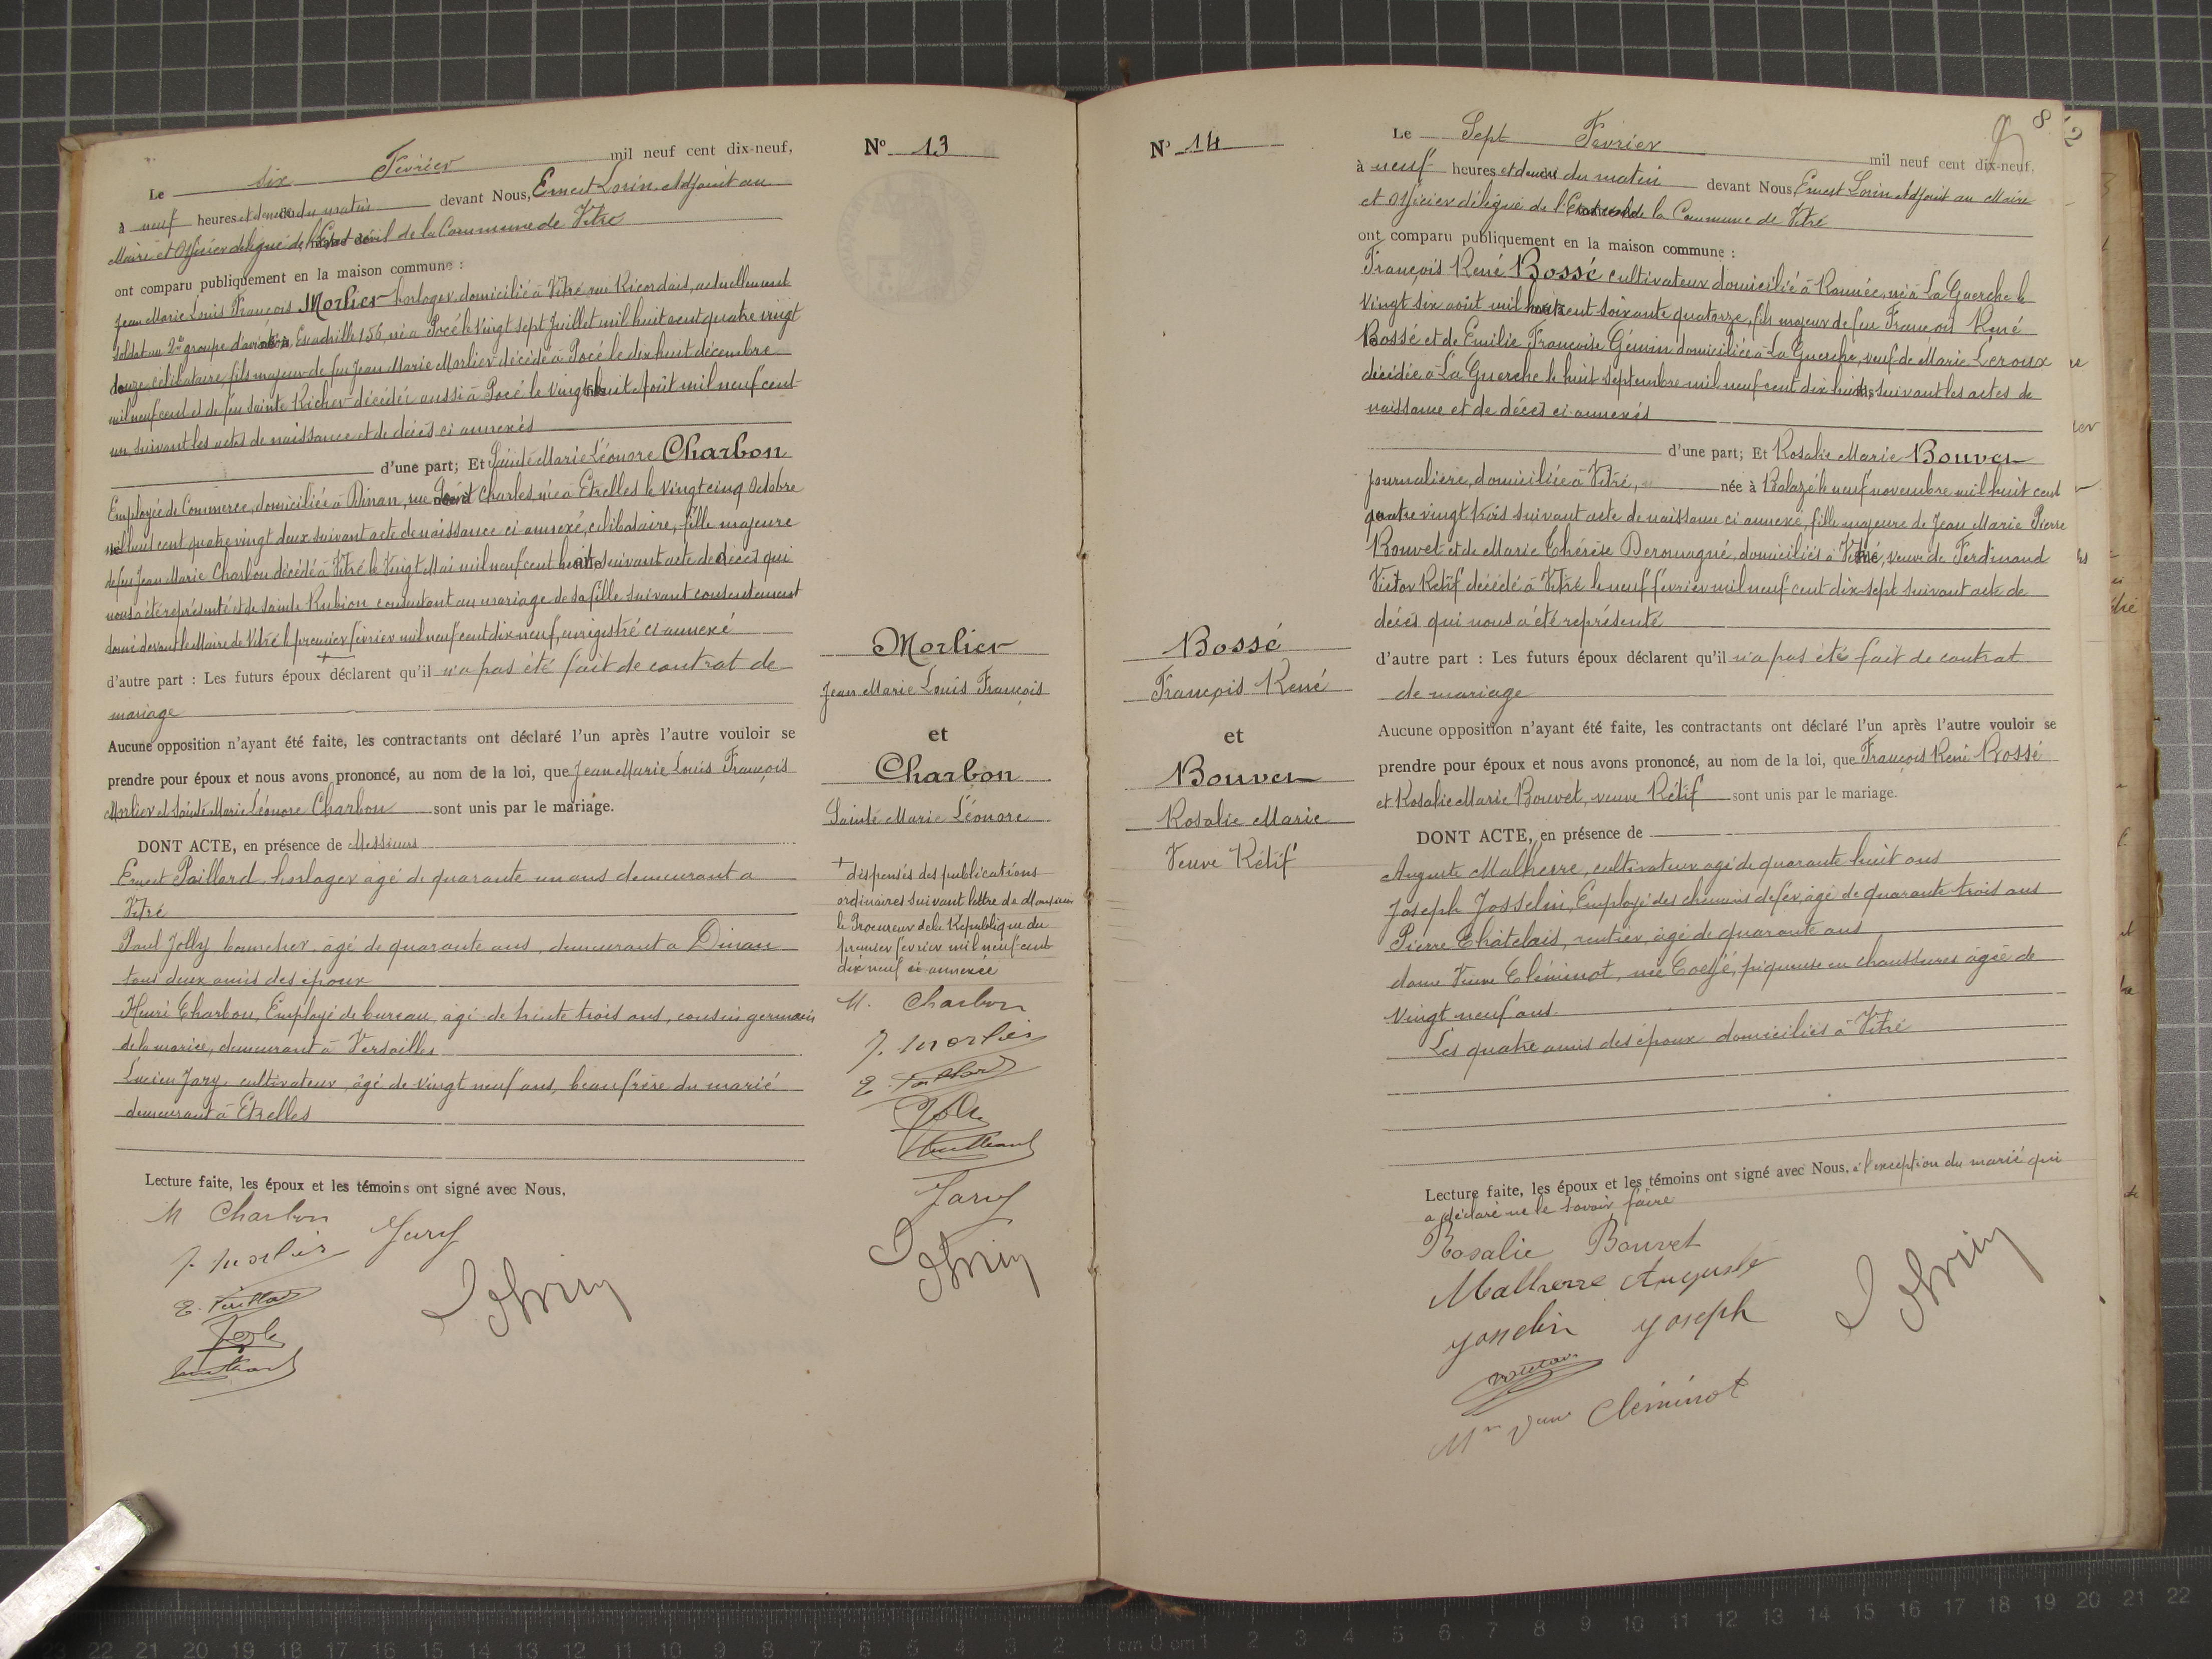 Le six Février mil neuf cent dix-neuf,
à neuf heures et demie du matin devant Nous, Ernest Lorin Adjoint au
Maire et Officier délégué de l'Etat civil de la Commune de Vitré
ont comparu publiquement en la maison commune :
Jean Marie Louis François Morlier horloger, domicilié à Vitré, rue Ricordais, actuellement
soldat au 2e groupe d'aviation, Escadrille 156, né à Pocé le vingt sept Juillet mil huit cent quatre vingt
douze célibataire, fils majeur de feu Jean Marie Morlier décédé à Pocé le dix huit décembre
mil neuf cent et de feu Sainte Richer décédée aussi à Pocé le vingt huit Août mil neuf cent
un suivant les actes de naissance et de décès ci annexés
d'une part; Et Sainte Marie Léonore Charbon
Employée de Commerce, domiciliée à Dinan, rue Charles, née à Etrelles le vingt cinq Octobre
mil huit cent quatre vingt deux suivant acte de naissance ci annexé, célibataire, fille majeure
de feu Jean Marie Charbon décédé à Vitré le vingt Mai mil neuf cent suivant acte de décès qui
nous a été représenté et de Sainte Rubion consentant au mariage de sa fille suivant consentement
donné devant le Maire de Vitré le premier février mil neuf cent dix neuf, enregistré ci annexé
+
d'autre part : Les futurs époux déclarent qu'il n'a pas été fait de contrat de
mariage
Aucune opposition n'ayant été faite, les contractants ont déclaré l'un après l'autre vouloir se
prendre pour époux et nous avons prononcé, au nom de la loi, que Jean Marie Louis François
Morlier et Sainte Marie Léonore Charbon sont unis par le mariage.
DONT ACTE, en présence de Messieurs
Ernest Paillard horloger âgé de quarante un ans demeurant à
Vitré
Paul Jolly âgé de quarante ans, demeurant à Dinan
tous deux amis des époux
Henri Charbon, Employé de bureau, âgé de trente trois ans, cousin germain
de la mariée, demeurant à Versailles
Lucien Jary, cultivateur, âgé de vingt neuf ans, beau frère du marié
demeurant à Etrelles
Lecture faite, les époux et les témoins ont signé avec Nous,
M Charbon Jary
J. Morlier
E. Paillard
No 13
Morlier
Jean Marie Louis François
et
Charbon
Sainte Marie Léonore
+ dispensés des publications
ordinaires suivant lettre de Monsieur
le Procureur de la République du
premier février mil neuf cent
dix neuf ci annexée
M. Charbon
J. Morlier
E. Paillard
Jary
No 14
Bossé
François René
et
Bouvet
Rosalie Marie
Veuve Rétif
8
Le Sept Février mil neuf cent dix-neuf,
à neuf heures et demie du matin devant Nous, Ernest Lorin Adjoint au Maire
et Officier délégué de l'Etat civil de la Commune de Vitré
ont comparu publiquement en la maison commune :
François René Bossé cultivateur domicilié à Rannée, né à La Guerche le
vingt six août mil huit cent soixante quatorze, fils majeur de feu François René
Bossé et de Emilie Françoise Gémin domiciliée à La Guerche, veuf de Marie Leroux
décédée à La Guerche le huit septembre mil neuf cent dix huit, suivant les actes de
naissance et de décès ci annexés
d'une part; Et Rosalie Marie Bouvet
Journalière, domiciliée à Vitré, née à Balazé le neuf novembre mil huit cent
quatre vingt trois suivant acte de naissance ci annexé, fille majeure de Jean Marie Pierre
Bouvet et de Marie Thérèse Deromagné, domiciliés à Vitré, veuve de Ferdinand
Victor Rétif décédé à Vitré le neuf février mil neuf cent dix sept suivant acte de
décès qui nous a été représenté
d'autre part : Les futurs époux déclarent qu'il n'a pas été fait de contrat
de mariage
Aucune opposition n'ayant été faite, les contractants ont déclaré l'un après l'autre vouloir se
prendre pour époux et nous avons prononcé, au nom de la loi, que François René Bossé
et Rosalie Marie Bouvet, veuve Rétif sont unis par le mariage.
DONT ACTE, en présence de
Auguste Malherre, cultivateur âgé de quarante huit ans
Joseph Josselin, Employé des chemins de fer, âgé de quarante trois ans
Pierre Châtelais, rentier, âgé de quarante ans
dame Veuve Cléminot, née piqueuse en chaussures âgée de
vingt neuf ans
Les quatre amis des époux domiciliés à Vitré
Lecture faite, les époux et les témoins ont signé avec Nous, à l'exception du marié qui
a déclaré ne le savoir faire
Rosalie Bouvet
Malherre Auguste
Josselin Joseph
Cléminot
22 21 20 19 18 17 16 15 14 13 12 11 10 9 8 7 6 5 4 3 2 1 cm 0 cm 1 2 3 4 5 6 7 8 9 10 11 12 13 14 15 16 17 18 19 20 21 22